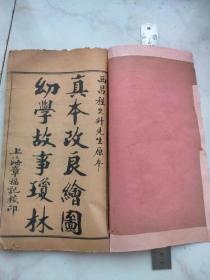 西昌程允升先生原本
真本改良繪圖
幼學故事瓊林
上海章福記校印